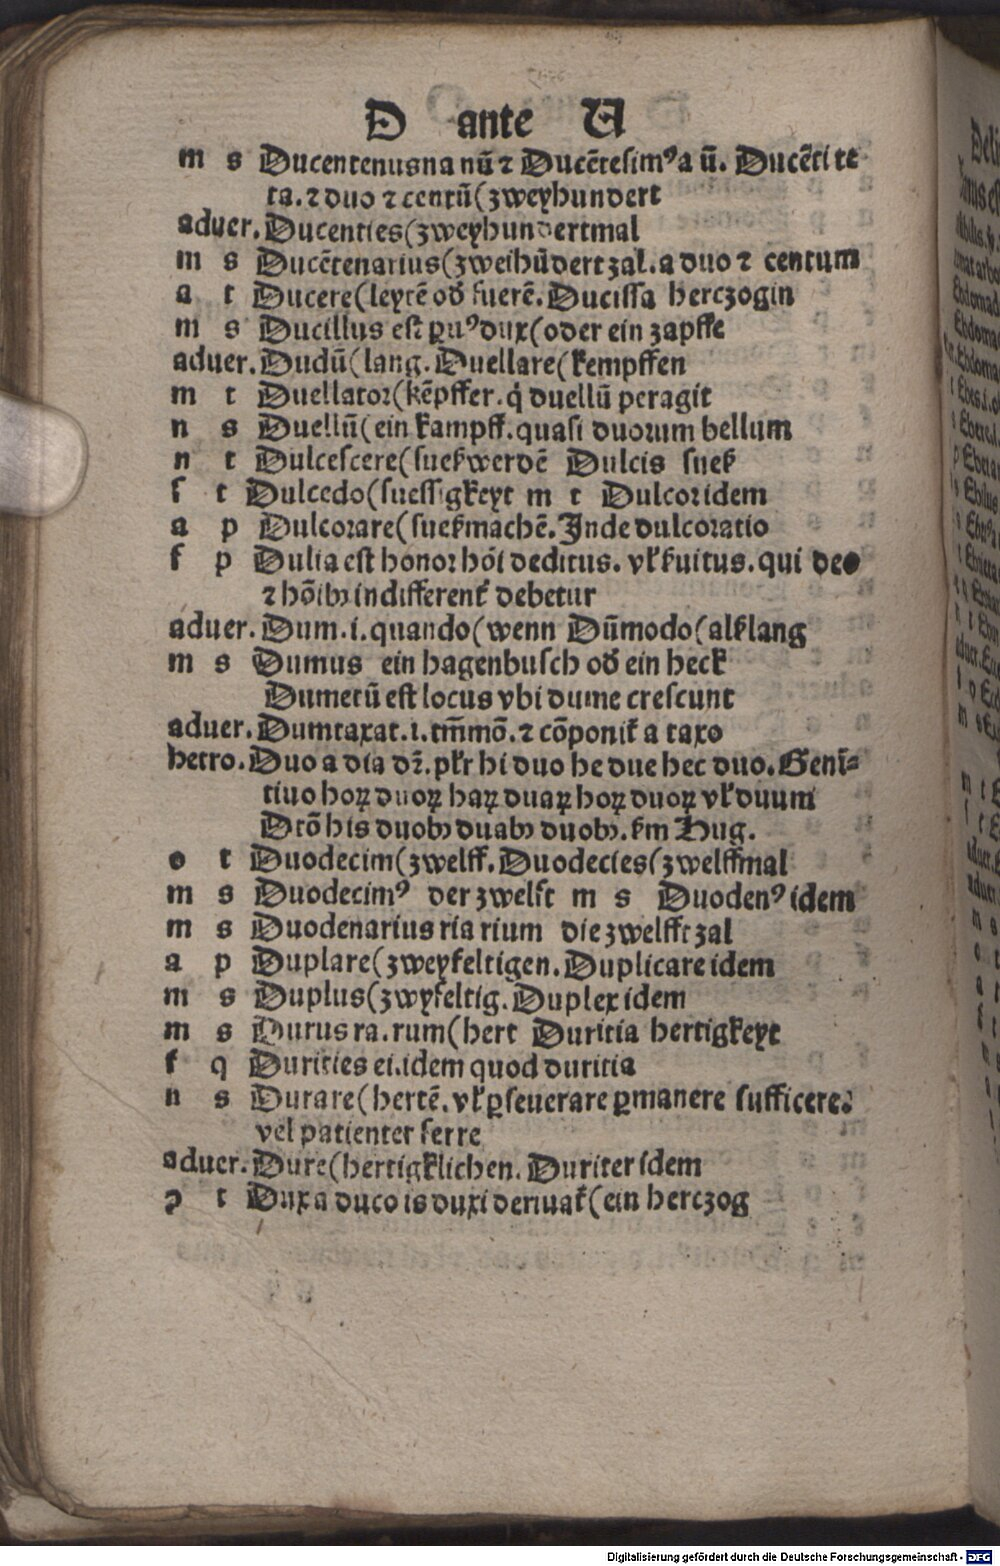 D ante U
m s Ducentenus na nū ⁊ Ducētesimꝰ a ū. Ducēti te
ta. ⁊ duo ⁊ centū (zweyhundert
aduer. Ducenties (zweyhundertmal
m s Ducētenarius (zweihūdert zal. a duo ⁊ centum
a t Ducere (leytē od̛ fuerē. Ducissa herczogin
m s Ducillus est ꝑuꝰ dux (oder ein zapffe
aduer. Dudū (lang. Duellare (kempffen
m t Duellator (kēpffer. q̇ duellū peragit
n s Duellū (ein kampff. quasi duorum bellum
n t Dulcescere (sueß werdē Dulcis sueß
f t Dulcedo (suessigkeyt m t Dulcor idem
a p Dulcorare (sueß machē. Inde dulcoratio
f p Dulia est honor hōi deditus. vl̛ ẜuitus. qui deo
⁊ hōibꝫ indifferent̛ debetur
aduer. Dum .i. quando (wenn Dūmodo (alßlang
m s Dumus ein hagenbusch od̛ ein heck
Dumetū est locus vbi dume crescunt
aduer. Dumtaxat .i. tm̄mō. ⁊ cōponit̛ a taxo
hetro. Duo a dia dꝛ̄. pl̛r hi duo he due hec duo. Geni⸗
tiuo hoꝝ duoꝝ haꝝ duaꝝ hoꝝ duoꝝ vl̛ duum
Dtō his duobꝫ duabꝫ duobꝫ. ẜm Hug.
o t Duodecim (zwelff. Duodecies (zwelffmal
m s Duodecimꝰ der zwelft m s Duodenꝰ idem
m s Duodenarius ria rium die zwelfft zal
a p Duplare (zweyfeltigen. Duplicare idem
m s Duplus (zwyfeltig. Duplex idem
m s Durus ra. rum (hert Duritia hertigkeyt
f q Durities ei. idem quod duritia
n s Durare (hertē. vl̛ ꝑseuerare ꝑmanere sufficere.
vel patienter ferre
aduer. Dure (hertigklichen. Duriter idem
ꝯ t Dux a duco is duxi deriuat̛ (ein herczog
Digitalisierung gefördert durch die Deutsche Forschungsgemeinschaft - DFG